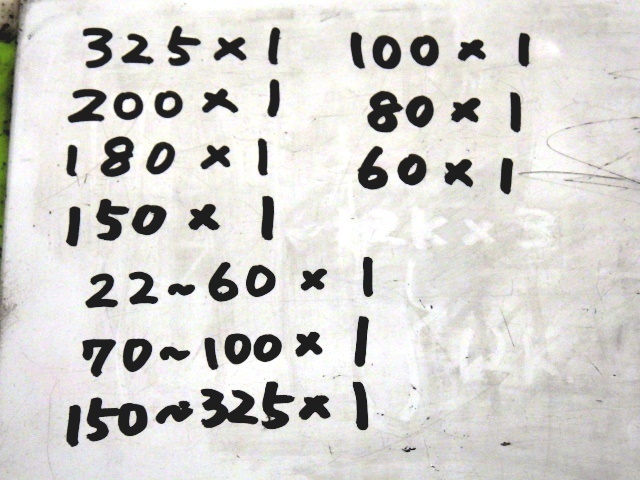 325×1
200×1
180×1
150×1
100×1
80×1
60×1
22~60×1
70~100×1
150~325×1